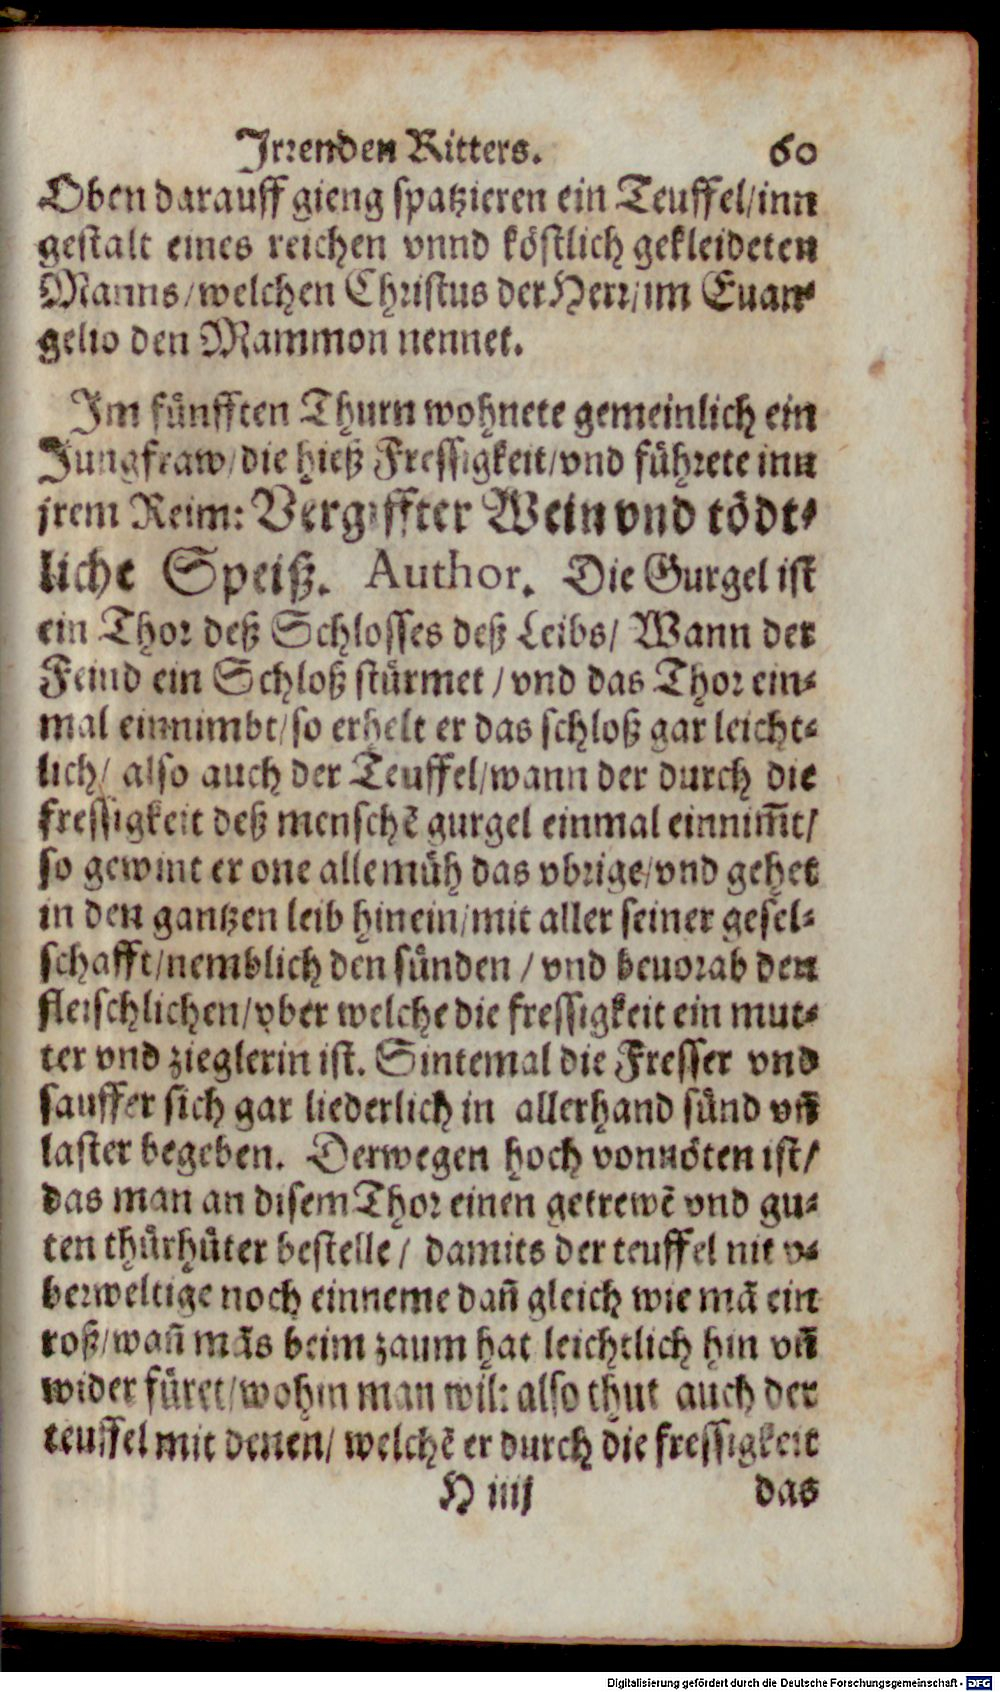 Irrenden Ritters. 60
Oben darauff gieng spatzieren ein Teuffel/inn
gestalt eines reichen vnnd köstlich gekleideten
Manns/welchen Christus der Herr/im Euan-
gelio den Mammon nennet.
Im fünfften Thurn wohnete gemeinlich ein
Jungfraw/die hieß Fressigkeit/vnd führete inn
jrem Reim: Vergiffter Wein vnd tödt-
liche Speiß. Author. Die Gurgel ist
ein Thor deß Schlosses deß Leibs/ Wann der
Feind ein Schloß stürmet/vnd das Thor ein-
mal einnimbt/so erhelt er das schloß gar leicht-
lich/ also auch der Teuffel/wann der durch die
fressigkeit deß menschẽ gurgel einmal einnim̃t/
so gewint er one alle müh das vbrige/vnd gehet
in den gantzen leib hinein/mit aller seiner gesel-
schafft/nemblich den sünden/vnd beuorab den
fleischlichen/vber welche die fressigkeit ein mut-
ter vnd zieglerin ist. Sintemal die Fresser vnd
sauffer sich gar liederlich in allerhand sünd vñ
laster begeben. Derwegen hoch vonnöten ist/
das man an disem Thor einen getrewẽ vnd gu-
ten thürhüter bestelle/ damits der teuffel nit v-
berweltige noch einneme dañ gleich wie mã ein
roß/wañ mãs beim zaum hat leichtlich hin vñ
wider füret/wohin man wil: also thut auch der
teuffel mit denen/ welchẽ er durch die fressigkeit
H iiij das
Digitalisierung gefördert durch die Deutsche Forschungsgemeinschaft - DFG